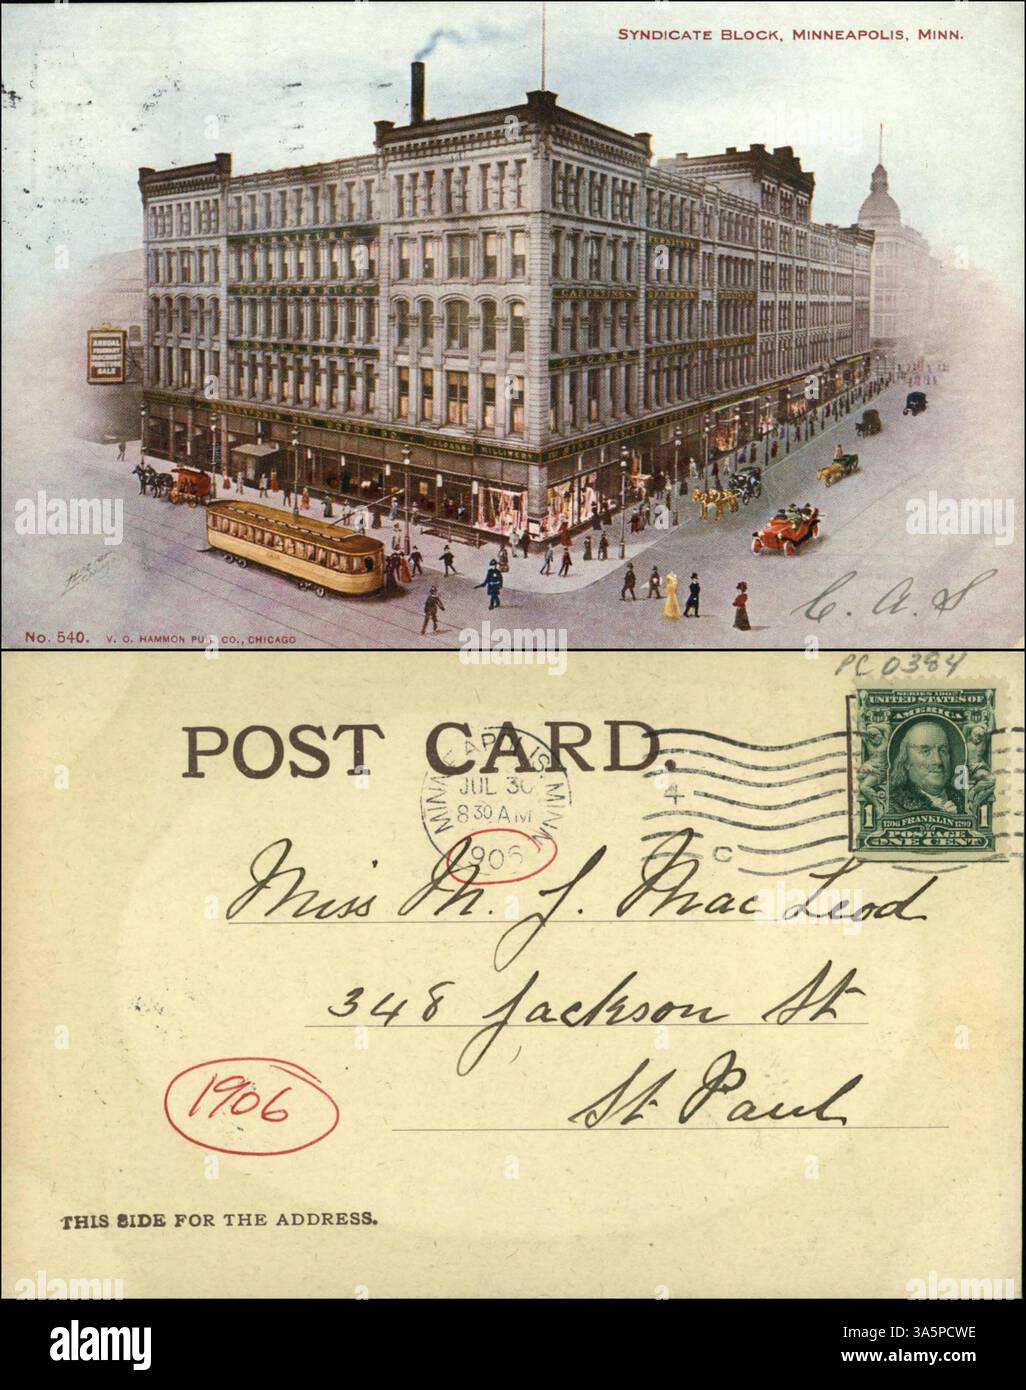 SYNDICATE BLOCK, MINNEAPOLIS, MINN.
ANNUAL
SALE
CARPETINGS
MILLINERY
C. A. S
No. 540. V. O. HAMMON PUB. CO., CHICAGO
PC 0384
POST CARD.
MINNEAPOLIS, MINN
JUL 30
8 30 AM
1906
4
C
SERIES 1902
UNITED STATES OF
AMERICA
1706 FRANKLIN 1790
1 POSTAGE 1
ONE CENT
Miss M. J. MacLeod
348 Jackson St
St Paul
1906
THIS SIDE FOR THE ADDRESS.
alamy
alamy
Image ID: 3A5PCWE
www.alamy.com